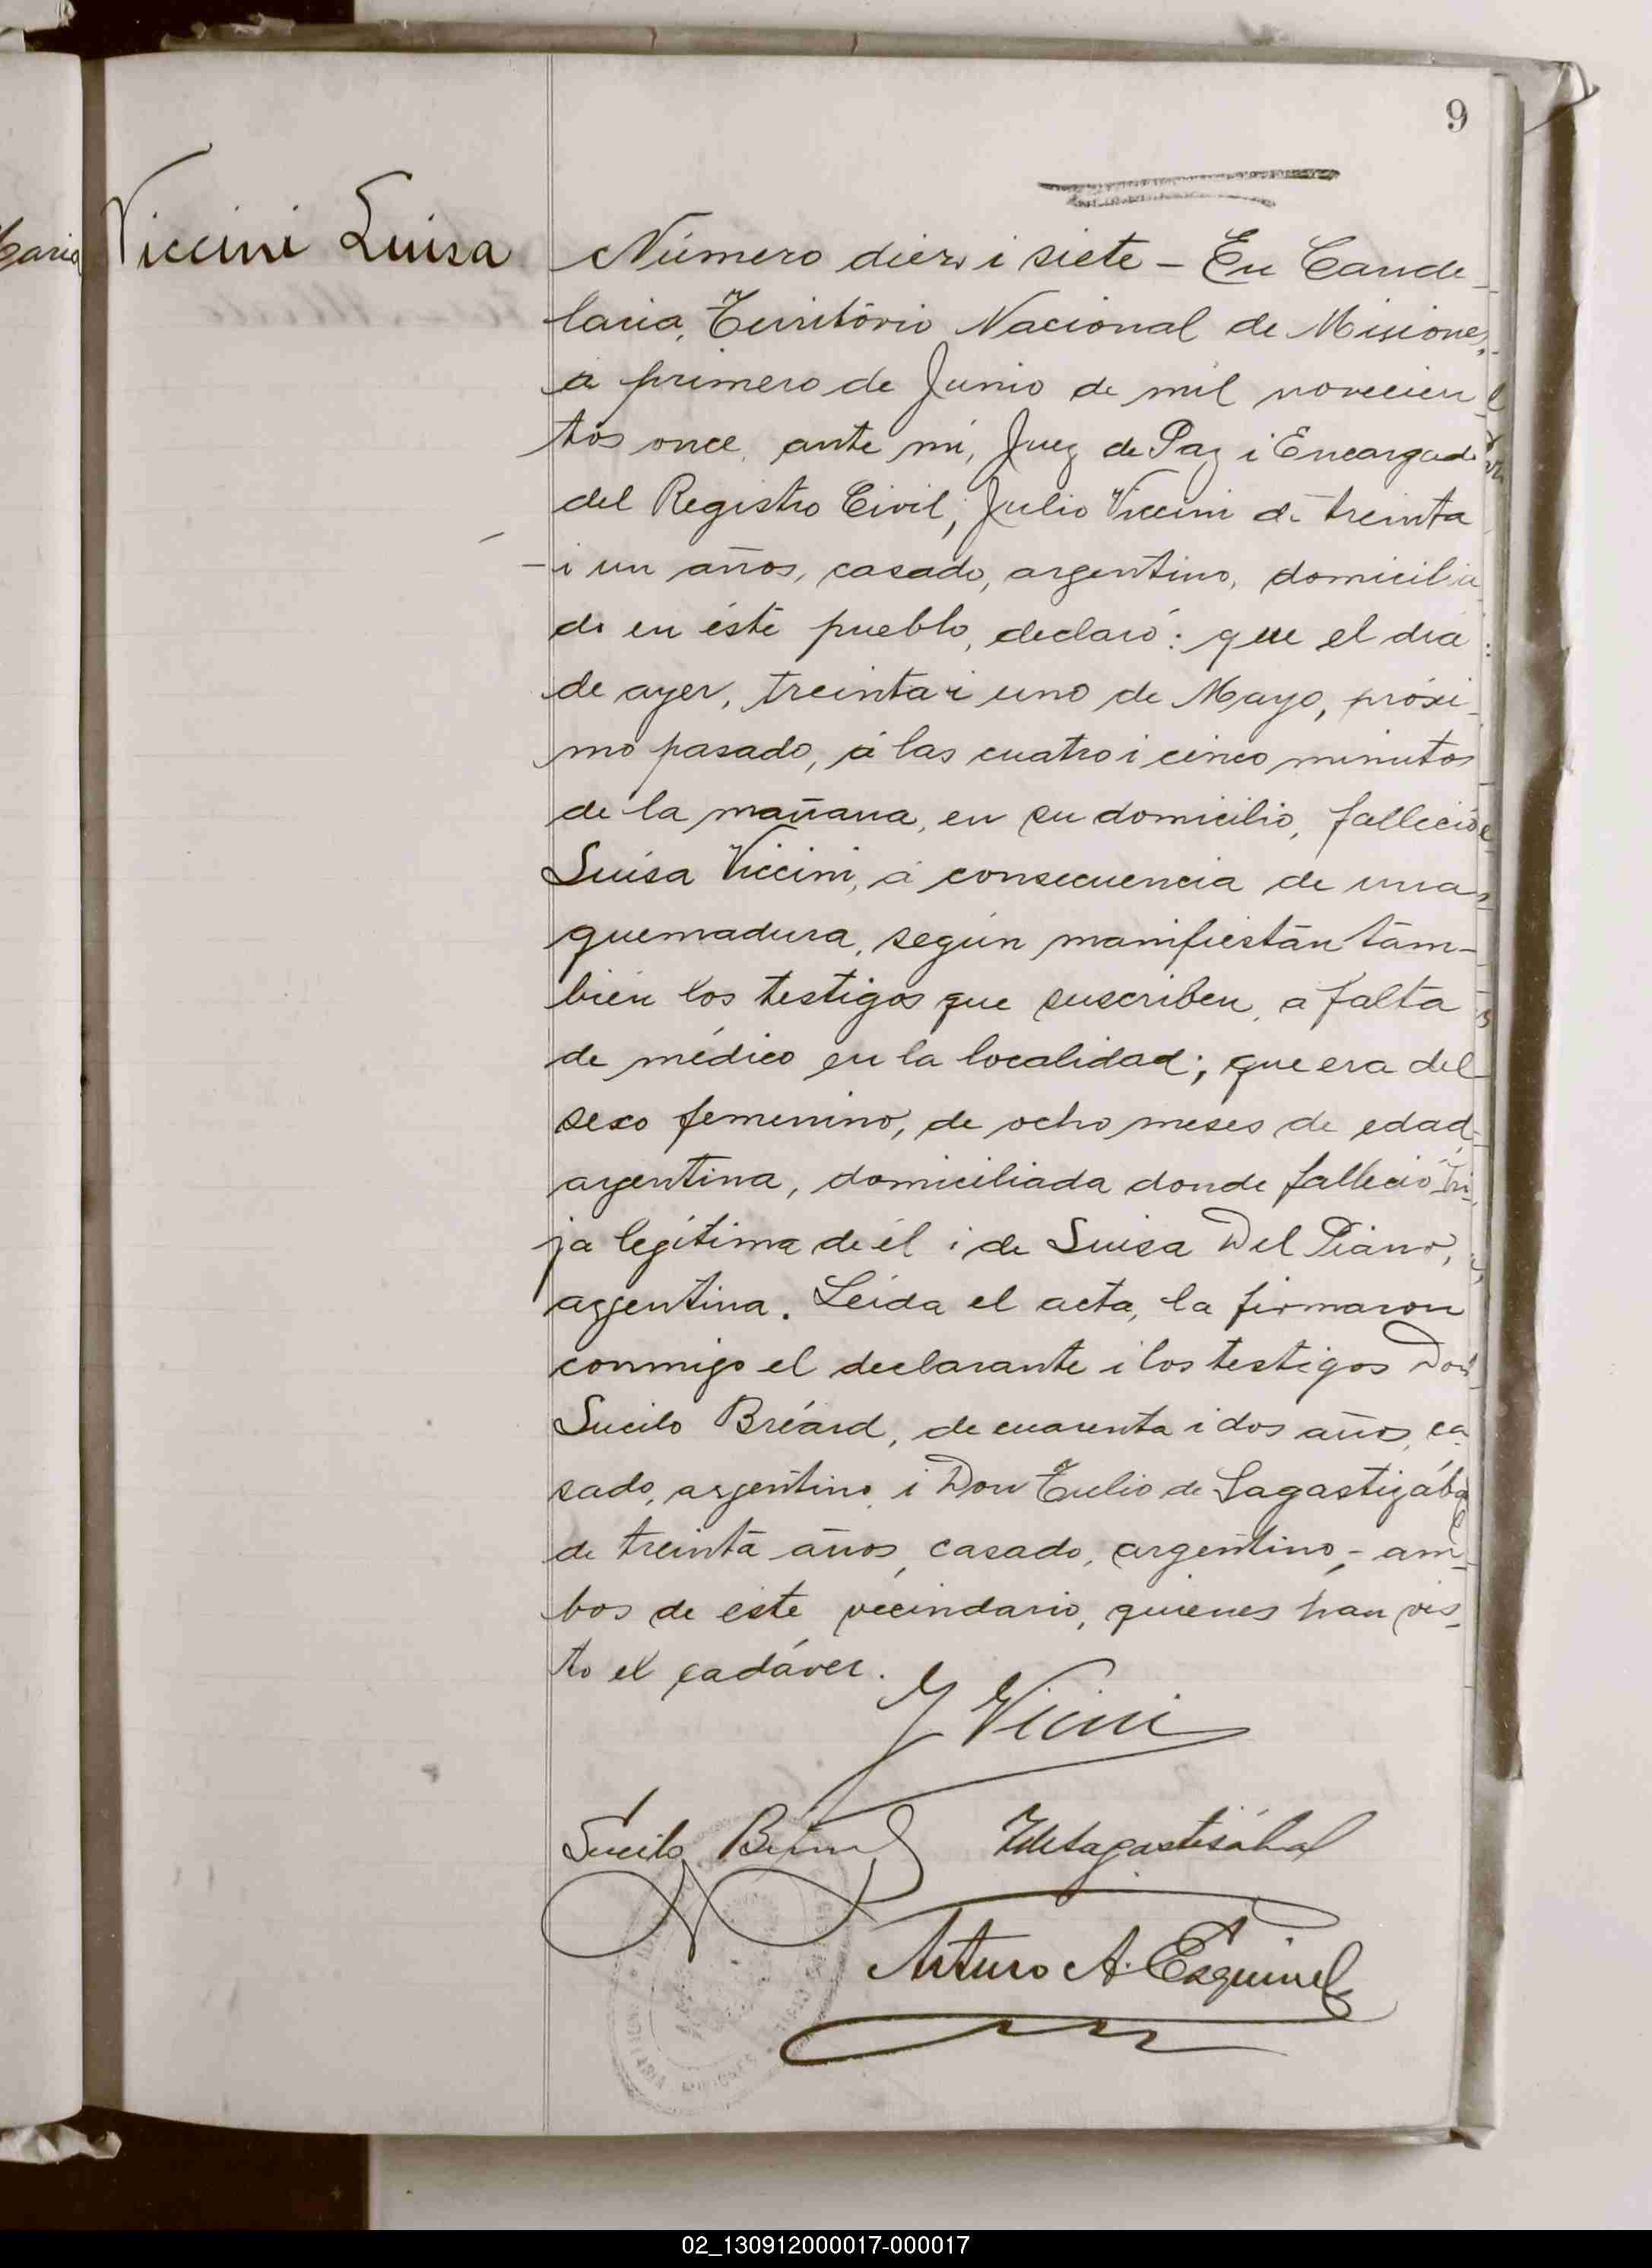 9
Viccini Luisa
Número diez i siete - En Cande
laria, Territorio Nacional de Misiones,
a primero de Junio de mil novecien
tos once, ante mí, Juez de Paz i Encargado
del Registro Civil, Julio Viccini de treinta
i un años, casado, argentino, domicilia
do en éste pueblo, declaró: que el día
de ayer, treinta i uno de Mayo, próxi-
mo pasado, á las cuatro i cinco minutos
de la mañana, en su domicilio, falleció
Luisa Viccini, á consecuencia de una
quemadura, según manifiestan tam-
bién los testigos que suscriben, a falta
de médico en la localidad; que era del
sexo femenino, de ocho meses de edad,
argentina, domiciliada donde falleció, hi-
ja legítima de él i de Luisa Del Piano,
argentina. Leida el acta, la firmaron
conmigo el declarante i los testigos Don
Lucilo Bréard, de cuarenta i dos años, ca
sado, argentino i Don Tulio de Lagastizábal
de treinta años, casado, argentino, - am-
bos de este vecindario, quienes han vis-
to el cadáver.
J Vicini
Lucilo
Arturo A. Esquivel
02_130912000017-000017